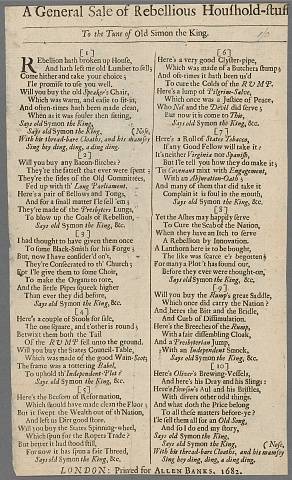 A General Sale of Rebellious Houshold-stuff
To the Tune of Old Simon the King.
[1]
Rebellion hath broken up House,
And hath left me old Lumber to sell;
Come hither and take your choice;
I'le promise to use you well.
Will you buy the old Speaker's Chair,
Which was warm, and easie to sit in,
And often-times hath been made clean,
When as it was fouler than fitting.
Says old Symon the King,
Says old Symon the King, (Nose,
With his thread-bare Cloaths, and his mamsey
Sing hey ding, ding, a ding ding.
[2]
Will you buy any Bacon-flitches?
They're the fattest that ever were spent;
They're the sides of the Old Committees,
Fed up with th' Long Parliament.
Here's a pair of Bellows and Tongs,
And for a small matter I'le sell 'em;
They're made of the Presbyters Lungs,
To blow up the Coals of Rebellion,
Says old Symon the King, &c.
[3]
I had thought to have given them once
To some Black-Smith for his Forge;
But, now I have consider'd on't,
They're Consecrated to th' Church;
For I'le give them to some Choir,
To make the Organs to rore,
And the little Pipes squeek higher
Than ever they did before,
Says old Symon the King, &c.
[4]
Here's a couple of Stools for sale,
The one square, and t'other is round;
Betwixt them both the Tail
Of the RUMP fell unto the ground.
Will you buy the States Council-Table,
Which was made of the good Wain-Scot;
The frame was a tottering Babel,
To uphold th' Independent-Plot?
Says old Symon the King, &c.
[5]
Here's the Beesom of Reformation,
Which should have made clean the Floor;
But it swept the Wealth out of th' Nation,
And left us Dirt good store.
Will you buy the States Spinning-wheel,
Which spun for the Ropers Trade?
But better it had stood still,
For now it has spun a fair Thread,
Says old Symon the King, &c.
[6]
Here's a very good Clyster-pipe,
Which was made of a Butchers stump;
And oft-times it hath been us'd
To cure the Colds of the RUMP.
Here's a lump of Pilgrim-Salve,
Which once was a Justice of Peace,
Who Nol and the Devil did serve;
But now it is come to This,
Says old Symon the King, &c.
[7]
Here's a Roll of States Tobacco,
If any Good Fellow will take it;
It's neither Virginia nor Spanish,
But I'le tell you how they do make it;
'Tis Covenant mixt with Engagement,
With an Abjuration-Oath;
And many of them that did take it
Complain it is foul in the mouth,
Says old Symon the King, &c.
[8]
Yet the Ashes may happily serve
To Cure the Scab of the Nation,
When they have an Itch to serve
A Rebellion by Innovation.
A Lanthorn here is to be bought,
The like was scarce e'r begotten;
For many a Plot 't has found out,
Before they ever were thought-on,
Says old Symon the King, &c.
[9]
Will you buy the Rump's great Saddle,
Which once did carry the Nation?
And here's the Bitt and the Bridle,
And Curb of Dissimulation.
Here's the Breeches of the Rump,
With a fair dissembling Cloak,
And a Presbyterian Jump,
With an Independent Smock,
Says old Symon the King, &c.
[10]
Here's Oliver's Brewing-Vessels,
And here's his Dray and his Slings;
Here's Hewson's Aul and his Bristles,
With divers other odd things.
And what doth the Price belong
To all these matters before-ye?
I'le sell them all for an Old Song,
And so I do end my story,
Says old Symon the King,
Says old Symon the King, (Nose,
With his thread-bare Cloaths, and his mamsey
Sing hey ding, ding, a ding, ding.
LONDON: Printed for ALLEN BANKS, 1682.